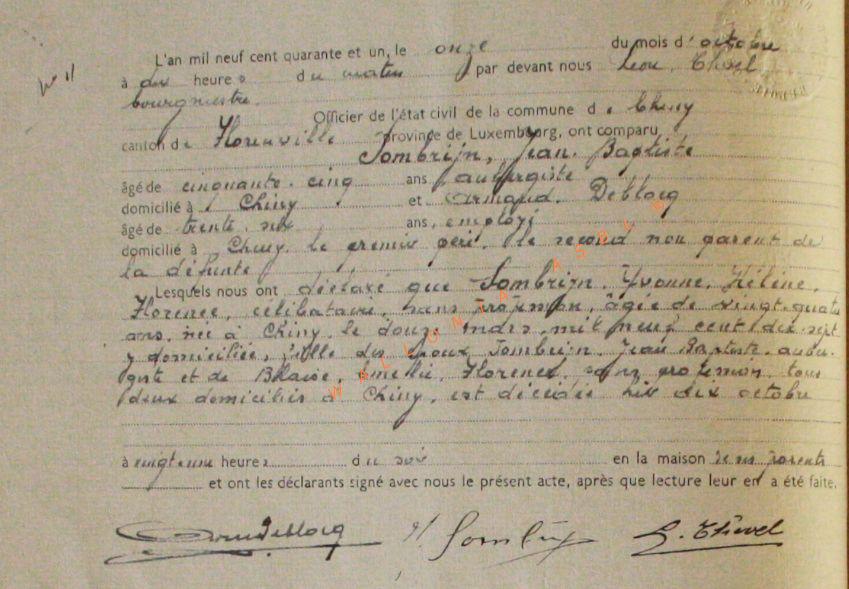 No 11
L'an mil neuf cent quarante et un, le onze du mois d'octobre
à dix heures du matin par devant nous Léon Thével
bourgmestre
Officier de l'état civil de la commune de Chiny
canton de Florenville province de Luxembourg, ont comparu
Sombrijn, Jean Baptiste
âgé de cinquante-cinq ans aubergiste
domicilié à Chiny et Armand Deblocq
âgé de trente ans, employé
domicilié à Chiny, le premier père, le second non parent de
la défunte
Lesquels nous ont déclaré que Sombrijn, Yvonne, Hélène,
Florence, célibataire, sans profession, âgée de vingt-quatre
ans, née à Chiny, le douze mars mil neuf cent dix-sept
y domiciliée, fille des époux Sombrijn Jean Baptiste auber-
giste et de Blaise, Emélie, Florence, sans profession, tous
deux domiciliés à Chiny, est décédée hier dix octobre
à vingt-une heures du soir en la maison de ses parents
et ont les déclarants signé avec nous le présent acte, après que lecture leur en a été faite.
Deblocq Sombrijn L. Thével